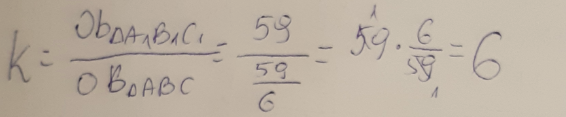 k = Ob△A₁B₁C₁ / OB△ABC = 59 / (59/6) = 59 · 6/59 = 6